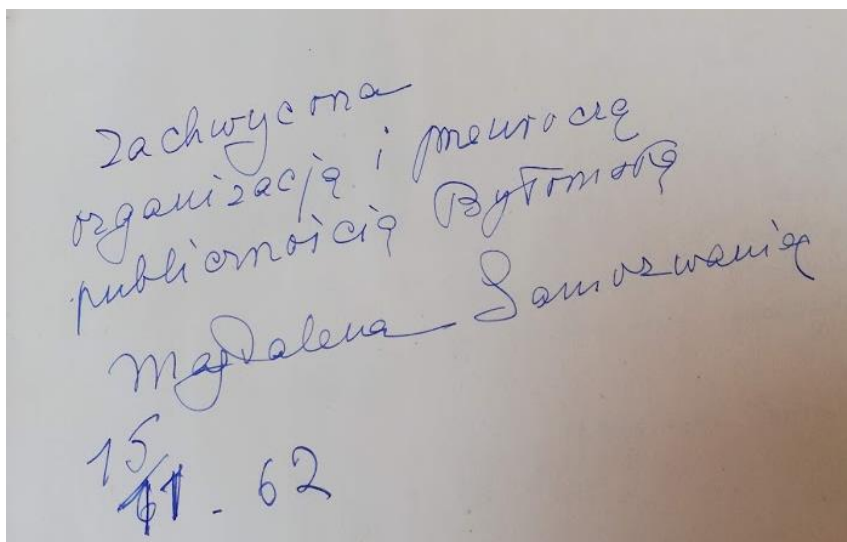 Zachwycona
organizacją i prawroczą
publicznością Bytomską
Magdalena Samozwaniec
15/11 - 62